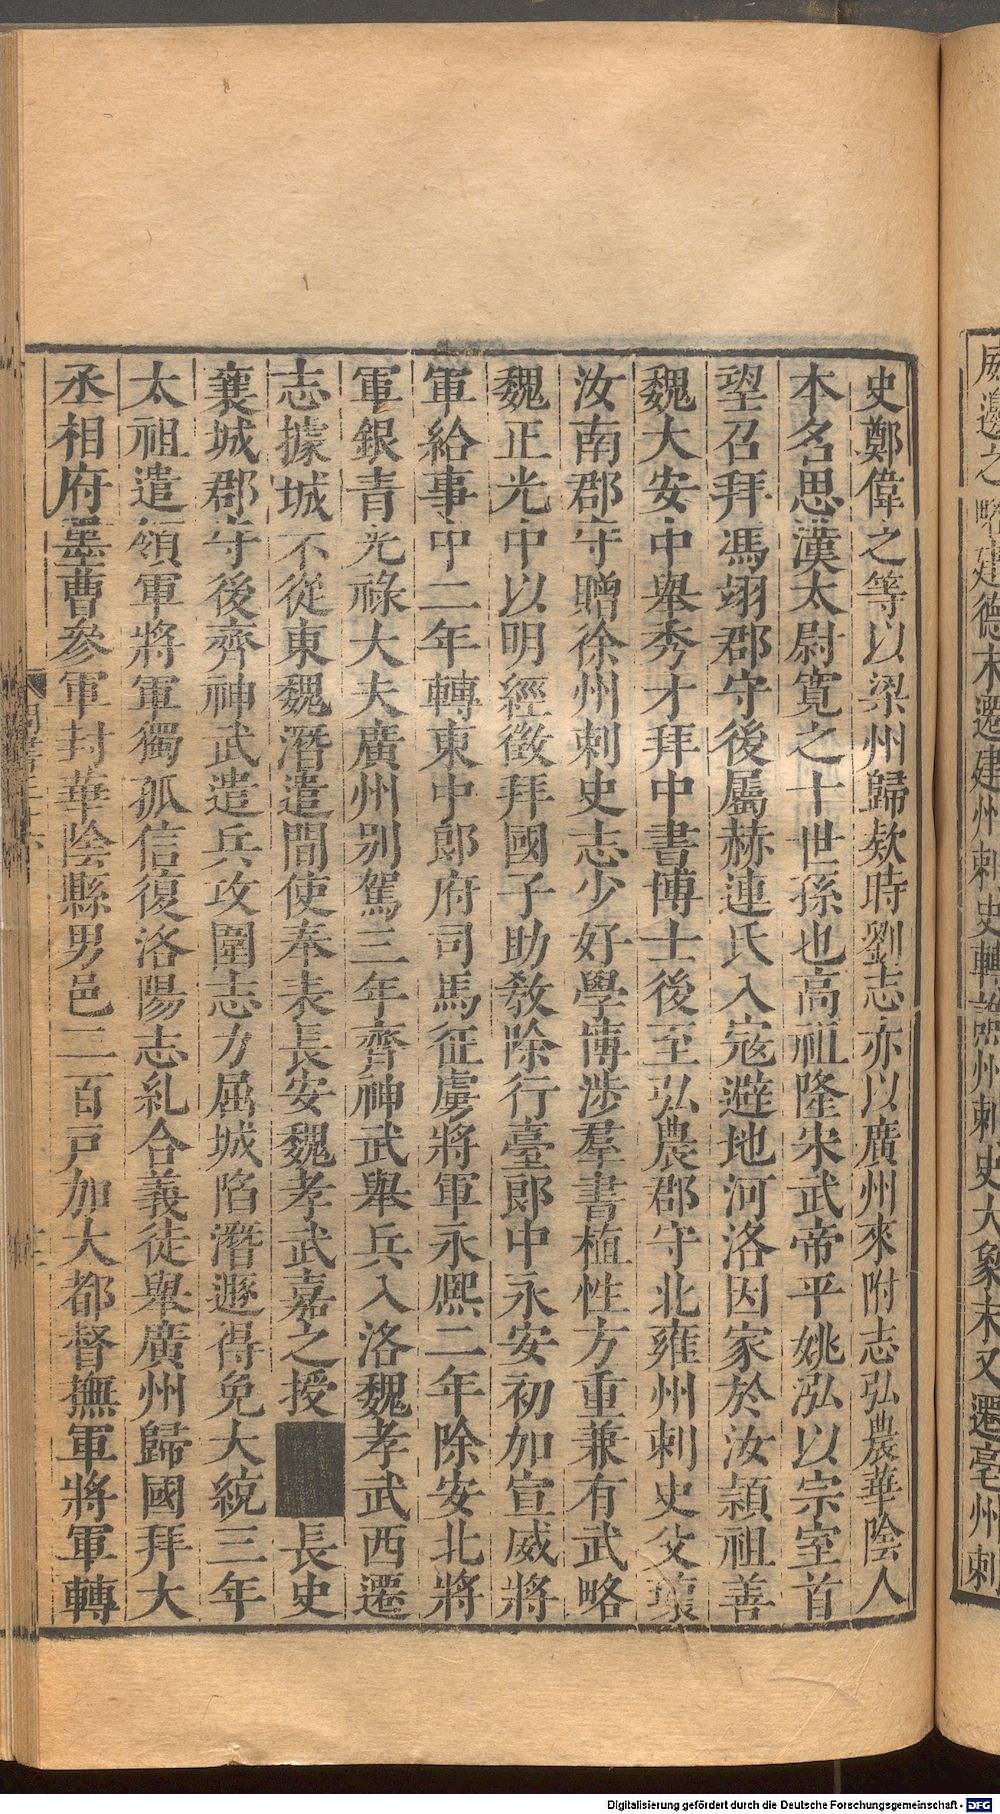 威邊之 略建德末遷建州刺史轉譙州刺史大象末又遷亳州刺
史鄭偉之等以梁州歸欵時劉志亦以廣州來附志弘農華陰人
本名思漢太尉寬之十世孫也高祖隆宋武帝平姚泓以宗室首
望召拜馮翊郡守後屬赫連氏入寇避地河洛因家於汝潁祖善
魏大安中舉秀才拜中書博士後至弘農郡守北雍州刺史父瓌
汝南郡守贈徐州刺史志少好學博涉羣書植性方重兼有武略
魏正光中以明經徵拜國子助敎除行臺郎中永安初加宣威將
軍給事中二年轉東中郎府司馬征虜將軍永熙二年除安北將
軍銀青光祿大夫廣州别駕三年齊神武舉兵入洛魏孝武西遷
志據城不從東魏潛遣間使奉表長安魏孝武嘉之授 長史
襄城郡守後齊神武遣兵攻圍志力屈城陷潛遯得免大統三年
太祖遣領軍將軍獨孤信復洛陽志糺合義徒舉廣州歸國拜大
丞相府墨曹參軍封華陰縣男邑二百戸加大都督撫軍將軍轉
Digitalisierung gefördert durch die Deutsche Forschungsgemeinschaft - DFG